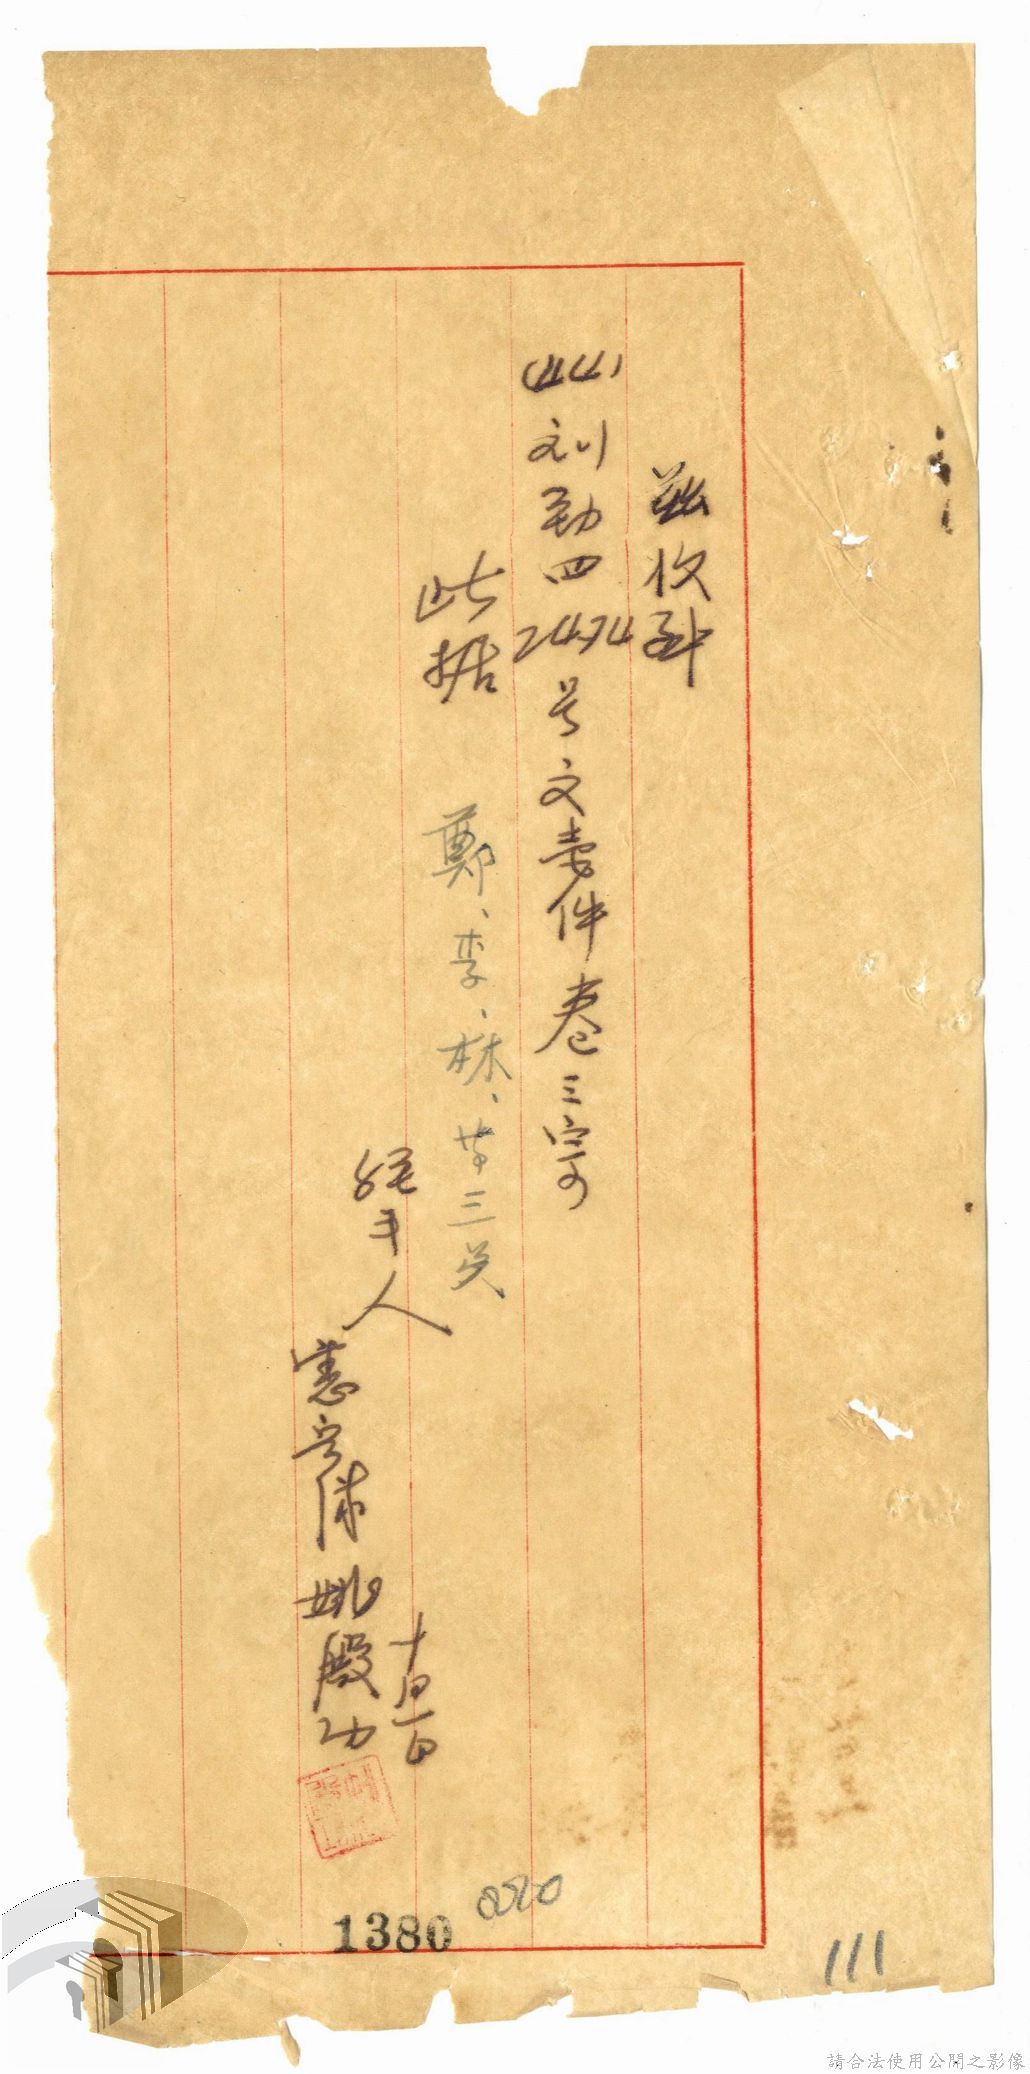 茲收到
(44)刘勁四2474号文壹件卷三宗
此据
鄭、李、林、等三英
經手人
十月一日
憲兵隊 姚殿功
0020
1380
111
請合法使用公開之影像